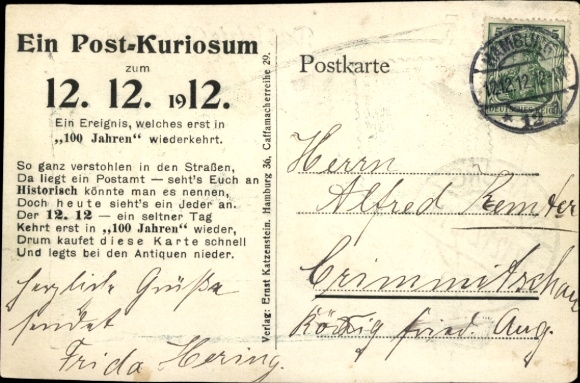 Ein Post-Kuriosum
zum
12. 12. 1912.
Ein Ereignis, welches erst in
„100 Jahren" wiederkehrt.
So ganz verstohlen in den Straßen,
Da liegt ein Postamt — seht's Euch an
Historisch könnte man es nennen,
Doch heute sieht's ein Jeder an.
Der 12. 12 — ein seltner Tag
Kehrt erst in „100 Jahren" wieder,
Drum kaufet diese Karte schnell
Und legts bei den Antiquen nieder.
herzliche Grüße
sendet
Frida Hering.
Verlag: Ernst Katzenstein. Hamburg 36, Caffamacherreihe 29.
Postkarte
HAMBURG
12.12.12.12-1N
* 12
Herrn
Alfred
Crimmitschau
König Fried. Aug.